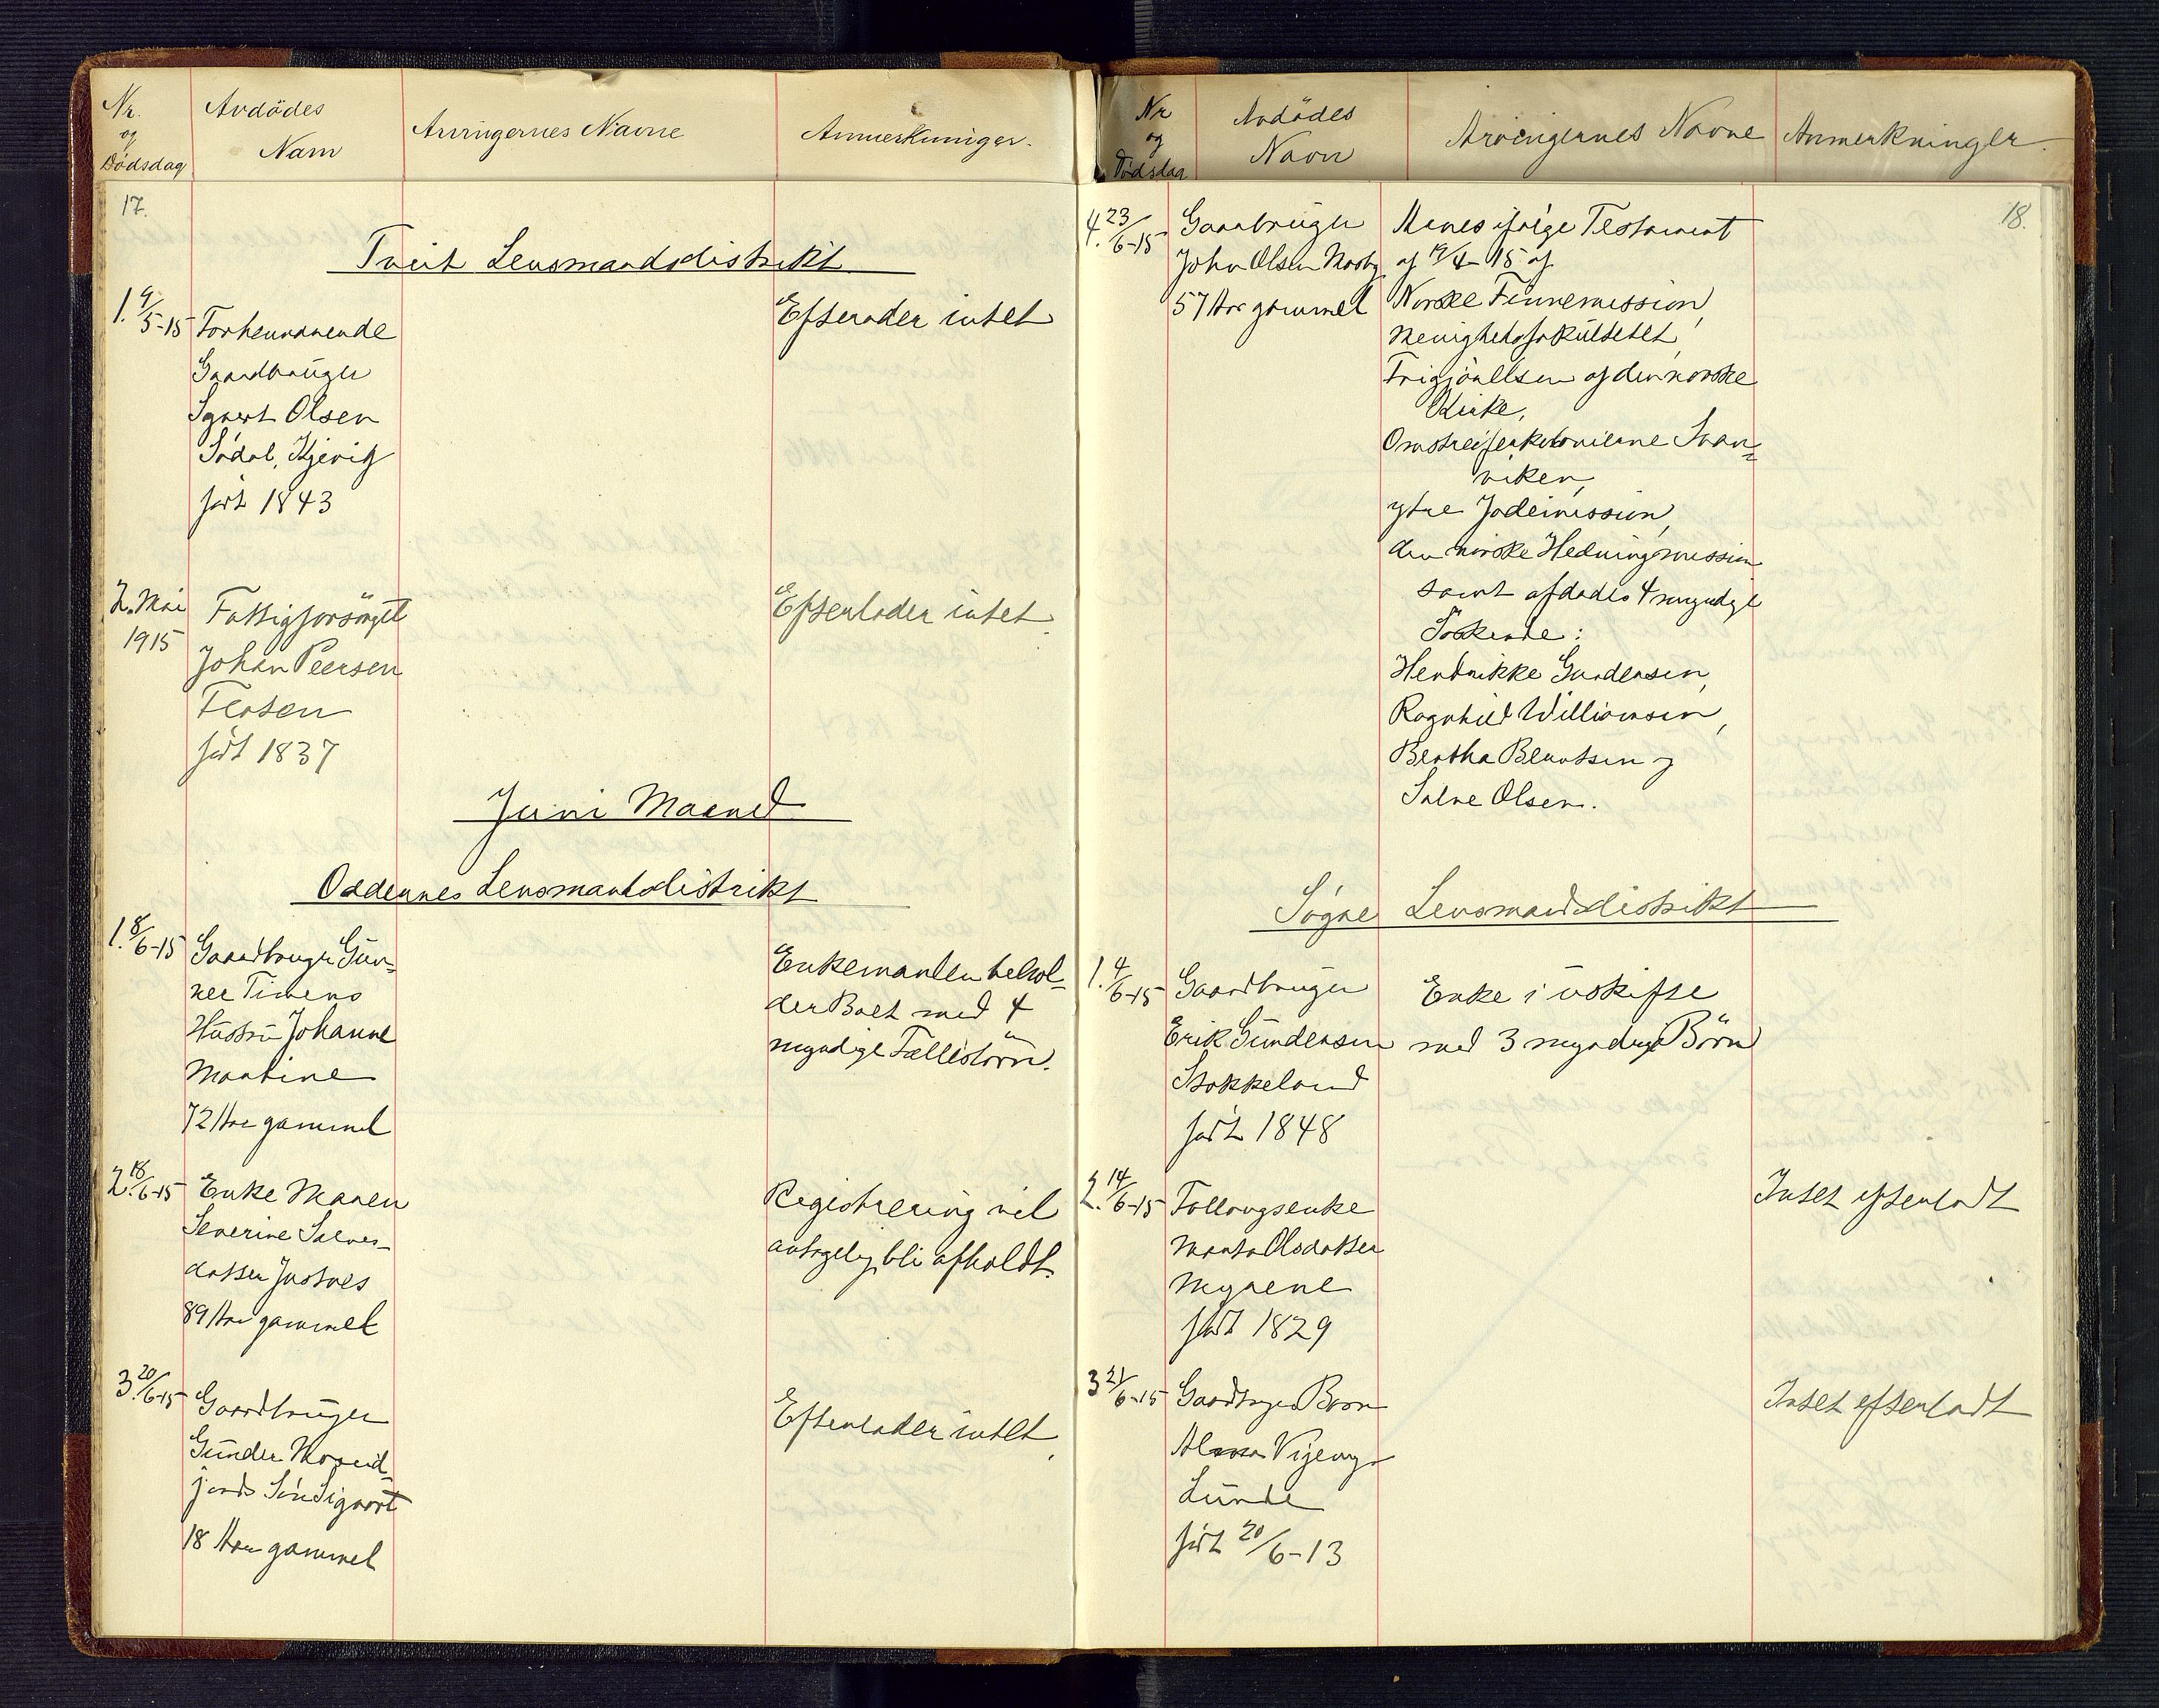 Nr. og Dødsdag
Avdödes Navn
Arvingernes Navne
Anmerkninger.
17.
Tveit Lensmandsdistrikt
1. 9/5-15 Forhenværende
Gaardbruger
Syvert Olsen
Södal, Kjevik
født 1843
Efterlader intet
2. Mai 1915
Fattigforsörget
Johan Peersen
født 1837
Efterlader intet.
Juni Maaned
Oddernes Lensmandsdistrikt
1. 8/6-15 Gaardbruger Gun-
ner Timens
Hustru Johanne
Martine
72 Aar gammel
Enkemanden behol-
der Boet med 4
myndige Fællesbörn.
2. 18/6-15 Enke Maren
Severine Salves-
datter Justnes
89 Aar gammel
Registrering vil
antagelig bli afholdt.
3. 20/6-15 Gaardbruger
Gunder Moseid-
jords Sön Sigvart
18 Aar gammel
Efterlader intet.
Nr og Dödsdag
Avdödes Navn
Arvingernes Navne
Anmerkninger.
18.
4. 23/6-15 Gaardbruger
John Olsen Mosby
57 Aar gammel
Arves ifølge Testament
af 19/4-15 af
Norske Finnemission,
Menighedsfakultetet,
Frigjörelsen af den norske
Kirke,
Omstreiferkolonierne Svan-
viken,
ytre Jödemission,
den norske Hedningmission
samt afdødes 4 myndige
Söskende:
Hendrikke Gundersen,
Ragnhild Williamsen,
Bertha Berntsen og
Salve Olsen.
Søgne Lensmandsdistrikt
1. 4/6-15 Gaardbruger
Erik Gundersen
Stokkeland
født 1848
Enke i uskifte
med 3 myndige Börn
2. 14/6-15 Føllaugsenke
Marta Olsdatter
Myrene
født 1829
Intet efterladt
3 21/6-15 Gaardbruger Barn
Vigeng
Lunde
født 20/6-13
Intet efterladt